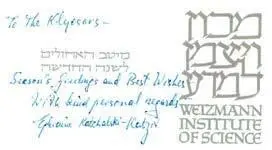 To The Klyesors–
מיטב האחולים
לשנה החדשה
Season's Greetings and Best Wishes
With kind personal regards–
Ephraim Katchalski-Katzir
מכון
ויצמן
למדע
WEIZMANN
INSTITUTE
OF SCIENCE